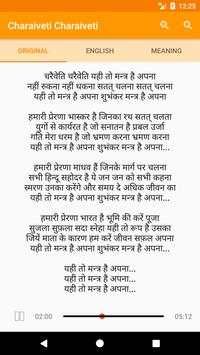 12:25
Charaiveti Charaiveti
ORIGINAL ENGLISH MEANING
चरैवेति चरैवेति यही तो मन्त्र है अपना
नहीं रुकना नहीं थकना सतत् चलना सतत् चलना
यही तो मन्त्र है अपना शुभंकर मन्त्र है अपना
हमारी प्रेरणा भास्कर है जिनका रथ सतत् चलता
युगों से कार्यरत है जो सनातन है प्रबल उर्जा
गति मेरा धरम है जो भ्रमण करना भ्रमण करना
यही तो मन्त्र है अपना शुभंकर मन्त्र है अपना
हमारी प्रेरणा माधव हैं जिनके मार्ग पर चलना
सभी हिन्दू सहोदर है ये जन जन को सभी कहना
स्मरण उनका करेंगे और समय दे अधिक जीवन का
यही तो मन्त्र है अपना शुभंकर मन्त्र है अपना
हमारी प्रेरणा भारत है भूमि की करें पूजा
सुजला सुफला सदा स्नेहा यही तो रूप है उसका
जियें माता के कारण हम करें जीवन सफल अपना
यही तो मन्त्र है अपना शुभंकर मन्त्र है अपना
यही तो मन्त्र है अपना...
यही तो मन्त्र है अपना...
यही तो मन्त्र है अपना...
02:00 05:12